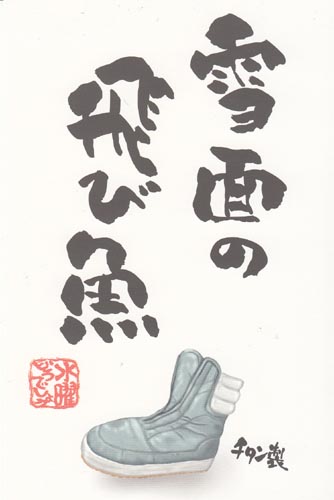 雪面の
飛び魚
水曜
どうでしょう
チタン製